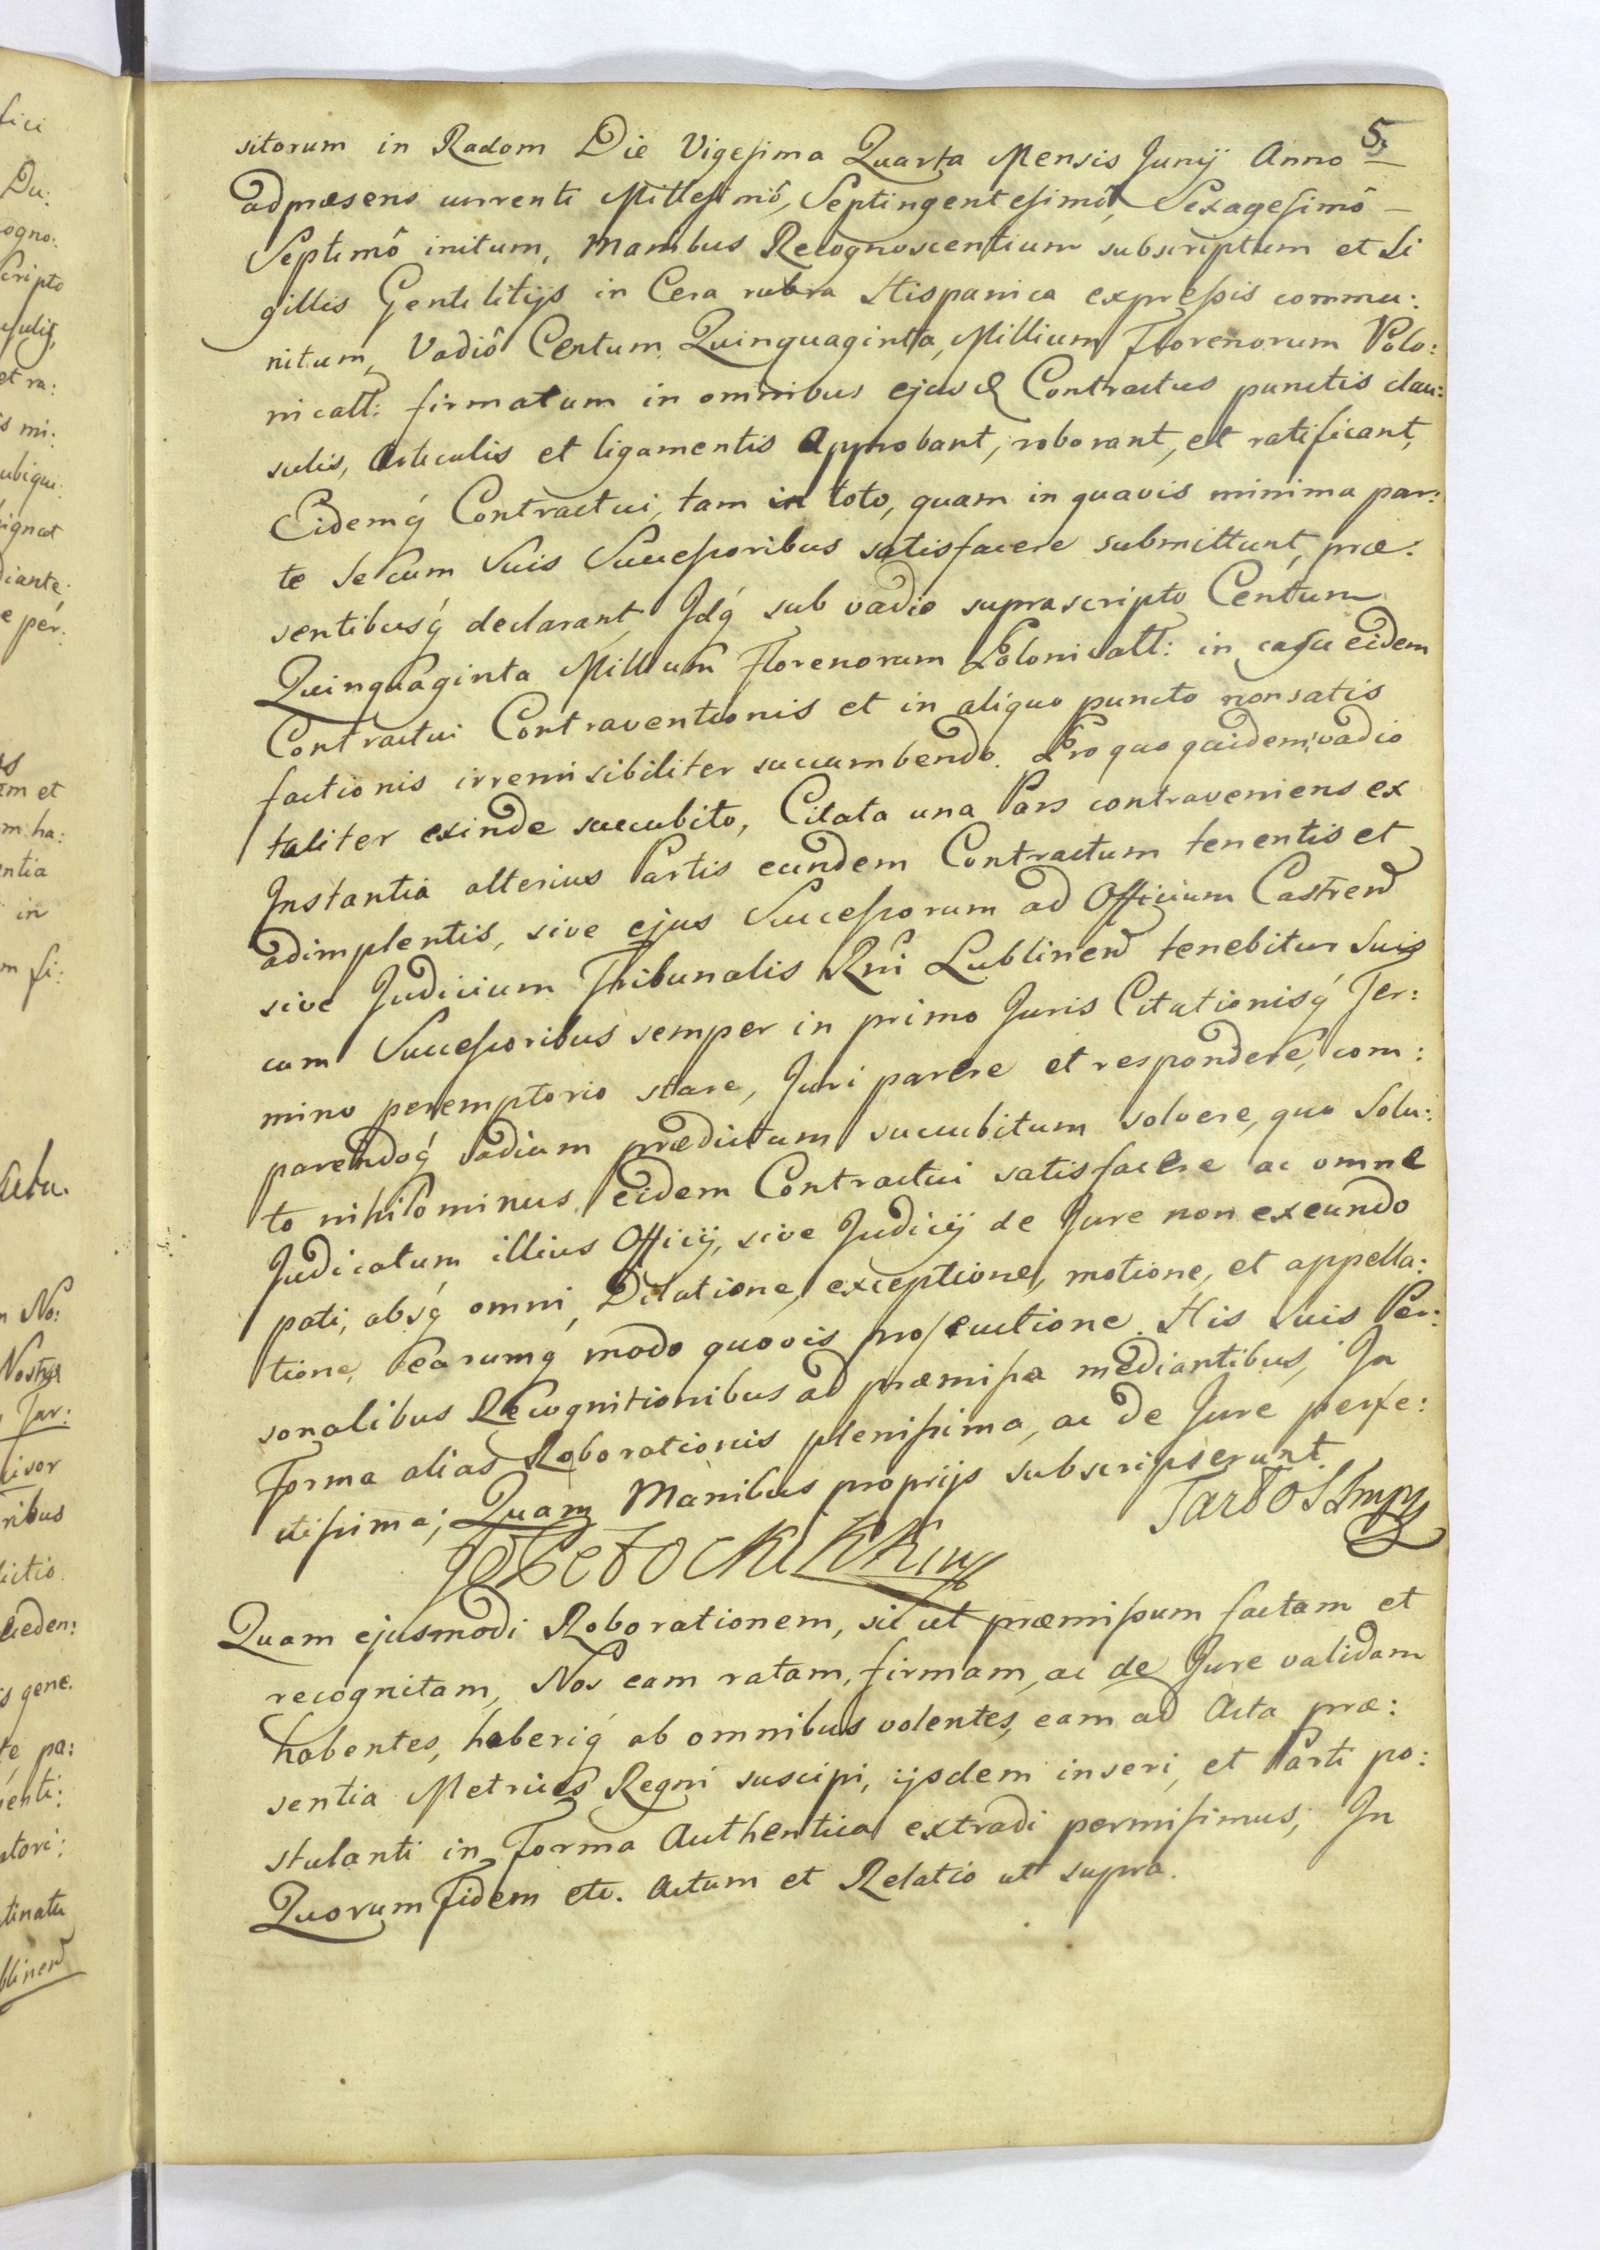 5.
sitorum in Radom Die Vigesima Quarta Mensis Junij Anno
adpræsens currenti Millesimô, Septingentesimô, Sexagesimô —
Septimô initum, Manibus Recognoscentium subscriptum et Si
gillis Gentilitijs in Cera rubra Hispanica expressis commu:
nitum, Vadiô Centum Quinquaginta, Millium Florenorum Polo:
nicall: firmatum in omnibus ejusd Contractus punctis clau:
sulis, Articulis et ligamentis Approbant, roborant, et ratificant,
Eidemq́ Contractui, tam in toto, quam in quavis minima par:
te se cum Suis Successoribus satisfacere submittunt, præ:
sentibusq́ declarant, Jdq́ sub vadio suprascripto Centum
Quinquaginta Millium Florenorum Polonicall: in casu eidem
Contractui Contraventionis et in aliquo puncto nonsatis
factionis irremisibiliter succumbendo. Pro quo quidem vadio
taliter exinde succubito, Citata una Pars contraveniens ex
Instantia alterius Partis eundem Contractum tenentis et
adimplentis, sive ejus Successorum ad Officium Castren
sive Judicium Tribunalis Rni Lublinen tenebitur Suis
cum Successoribus semper in primo Juris Citationisq́ Ter:
mino peremptorio stare, Juri parere et respondere, com:
parendoq́ vadium prædictum succubitum solvere, quo Solu:
to nihilominus eidem Contractui satisfacere ac omne
Judicatum illius Officij, sive Judicij de Jure non exeundo
pati, absq́ omni Dilatione, exceptione, motione, et appella:
tione, earumq́ modo quovis prosecutione. His Suis Per:
sonalibus Recognitionibus ad præmissa mediantibus, In
Forma alias Roborationis plenissima, ac de Jure perfe:
ctissima; Quam Manibus proprijs subscripserunt.
Quam ejusmodi Roborationem, sic ut præmissum factam et
recognitam, Nos eam ratam, firmam, ac de Jure validam
habentes, haberiq́ ab omnibus volentes, eam ad Acta præ:
sentia Metrices Regni suscipi, ijsdem inseri, et Parti po:
stulanti in Forma Authentica extradi permisimus; In
Quorum Fidem etc. Actum et Relatio ut supra.